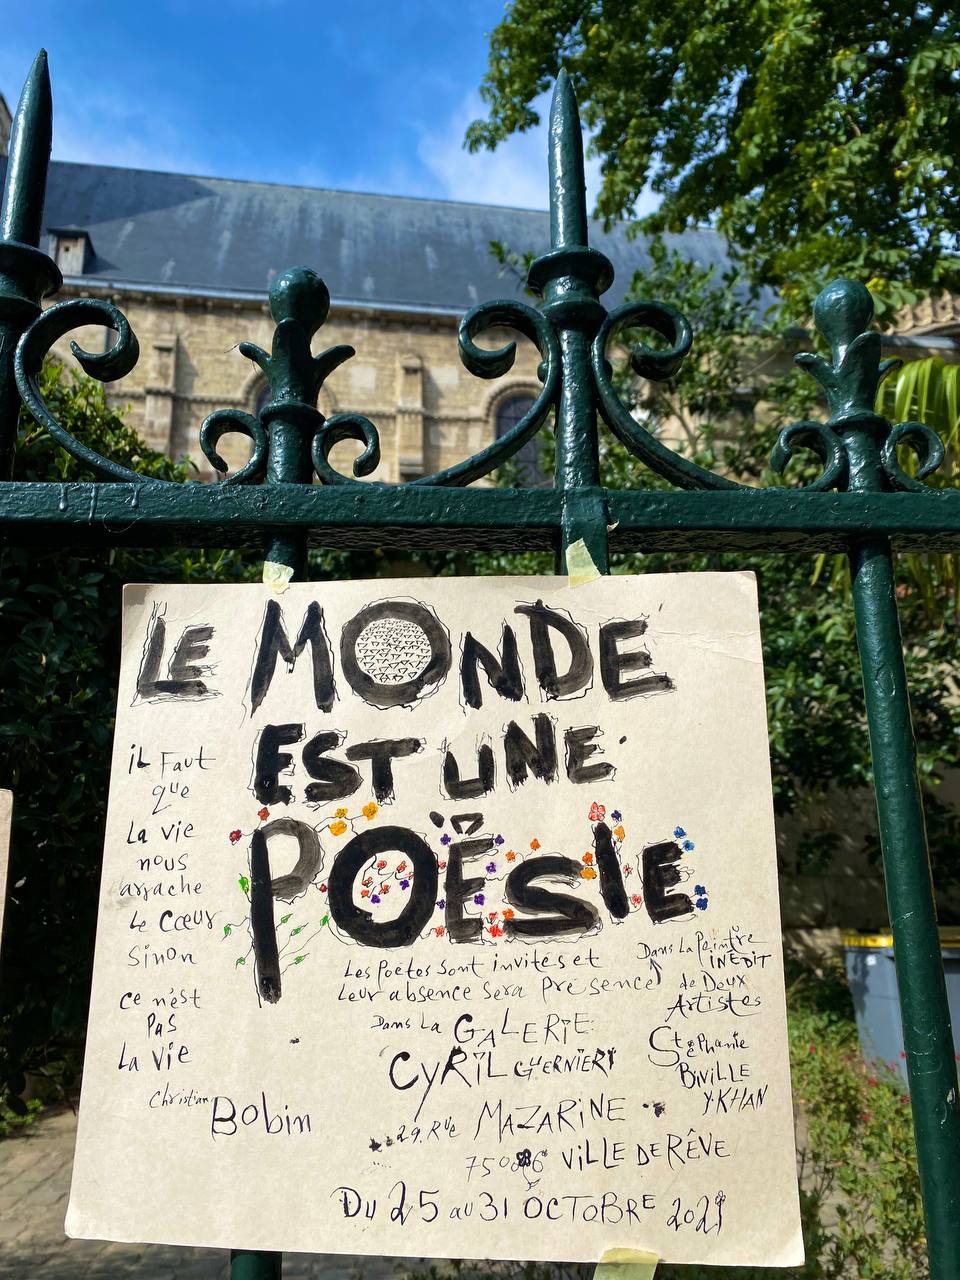 LE MONDE
EST UNE
POËSIE
iL Faut
que
La vie
nous
arrache
Le Cœur
Sinon
ce n'est
Pas
La vie
Christian
Bobin
Les Poètes Sont invités et
Leur absence Sera Présence
Dans La Peintre
iNÉDiT
de Deux
Artistes
Stéphanie
BiViLLE
Y·KHAN
Dans La GALERiE:
CYRiL GUERNiERi
29. Rue MAZARiNE
ViLLE DE RÊVE
DU 25 au 31 OCTOBRE